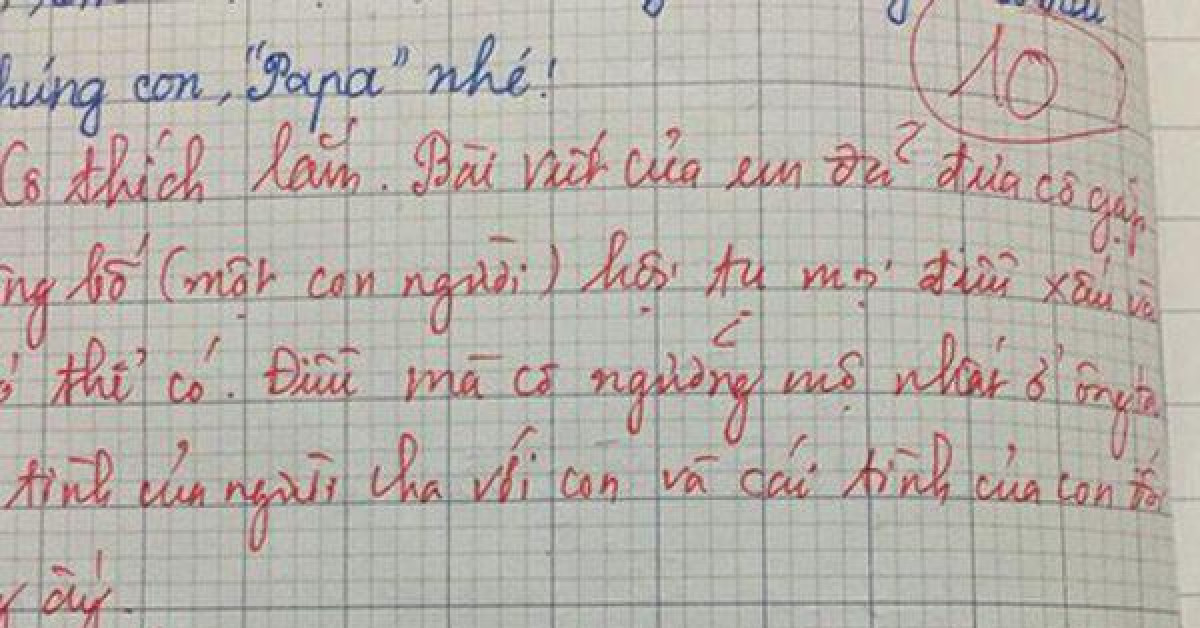 húng con, "Papa" nhé!
10
Cô thích lắm. Bài viết của em đã đưa cô gặp
ng bố (một con người) hội tụ mọi điều xấu và
thể có. Điều mà cô ngưỡng mộ nhất ở ông ta
tình của người cha với con và cái tình của con
ấy.